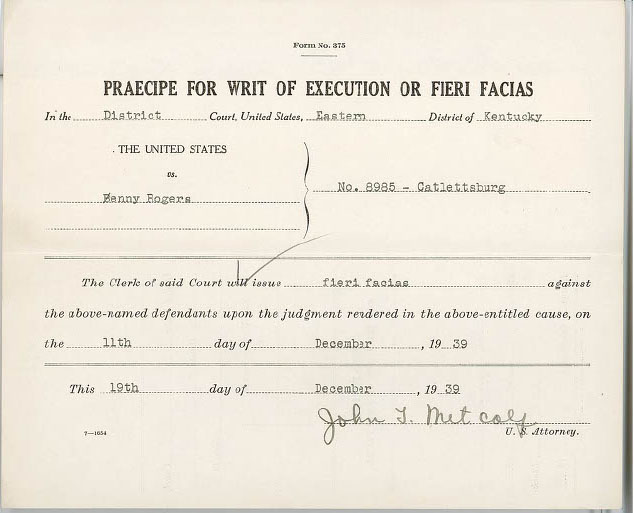 Form No. 375
PRAECIPE FOR WRIT OF EXECUTION OR FIERI FACIAS
In the District Court, United States, Eastern District of Kentucky
THE UNITED STATES
vs.
No. 8985 - Catlettsburg
Henny Rogers
The Clerk of said Court will issue fieri facias against
the above-named defendants upon the judgment rendered in the above-entitled cause, on
the 11th day of December, 19 39
This 19th day of December, 19 39
John T. Metcalf
7—1654
U. S. Attorney.